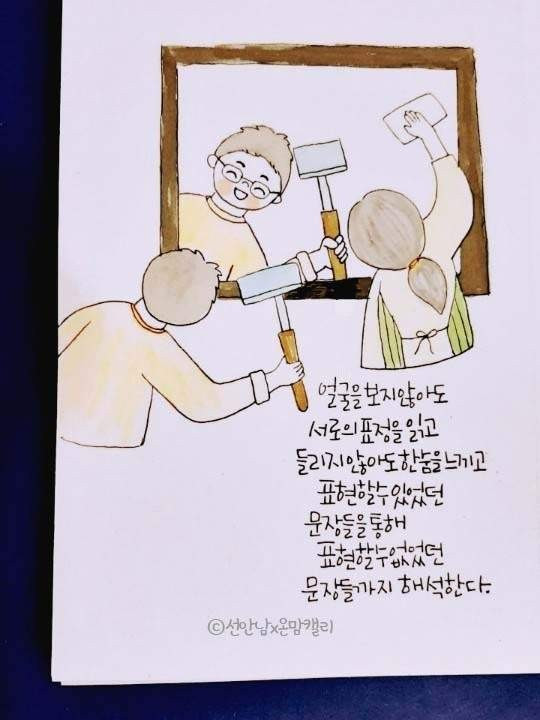 얼굴을 보지 않아도
서로의 표정을 읽고
들리지 않아도 한숨을 느끼고
표현할 수 있었던
문장들을 통해
표현할 수 없었던
문장들까지 해석한다.
©선안남x온맘캘리